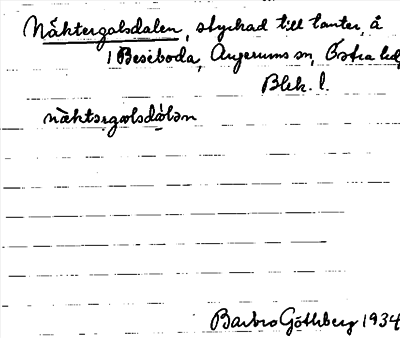 Näktergalsdalen, styckad till tomter, å
1 Beseboda, Augerums sn, Östra hd,
Blek. l.
näktərgalsdálən
Barbro Göthberg 1934